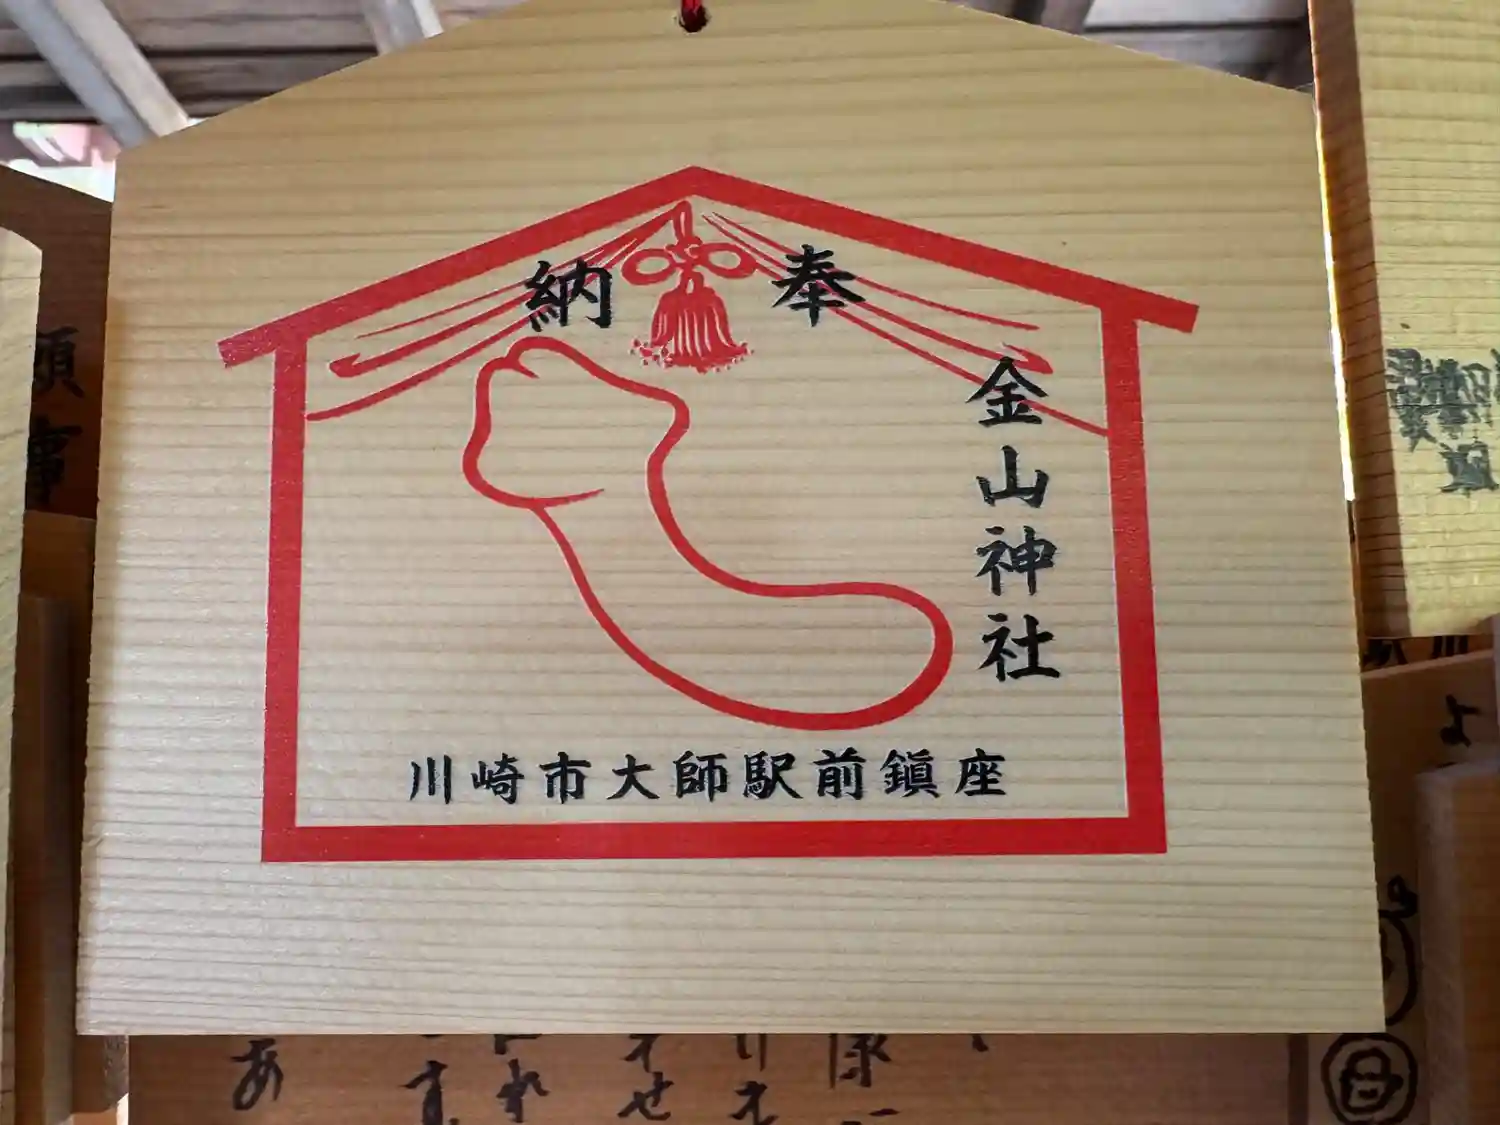 奉納
金山神社
川崎市大師駅前鎮座
願事